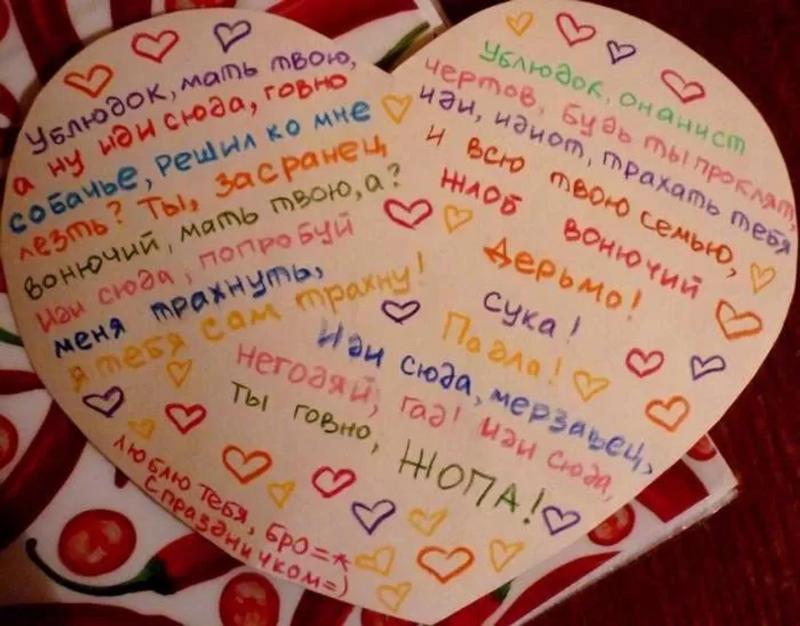 Ублюдок, мать твою,
а ну иди сюда, говно
собачье, решил ко мне
лезть? Ты, засранец,
вонючий, мать твою, а?
Иди сюда, попробуй
меня трахнуть,
я тебя сам трахну!
Ублюдок, онанист
чертов, будь ты проклят,
иди, идиот, трахать тебя
и всю твою семью,
жлоб вонючий
дерьмо!
Сука!
Падла!
Иди сюда, мерзавец,
негодяй, гад! Иди сюда,
ты говно, ЖОПА!
люблю тебя, бро=*
С праздничком=)